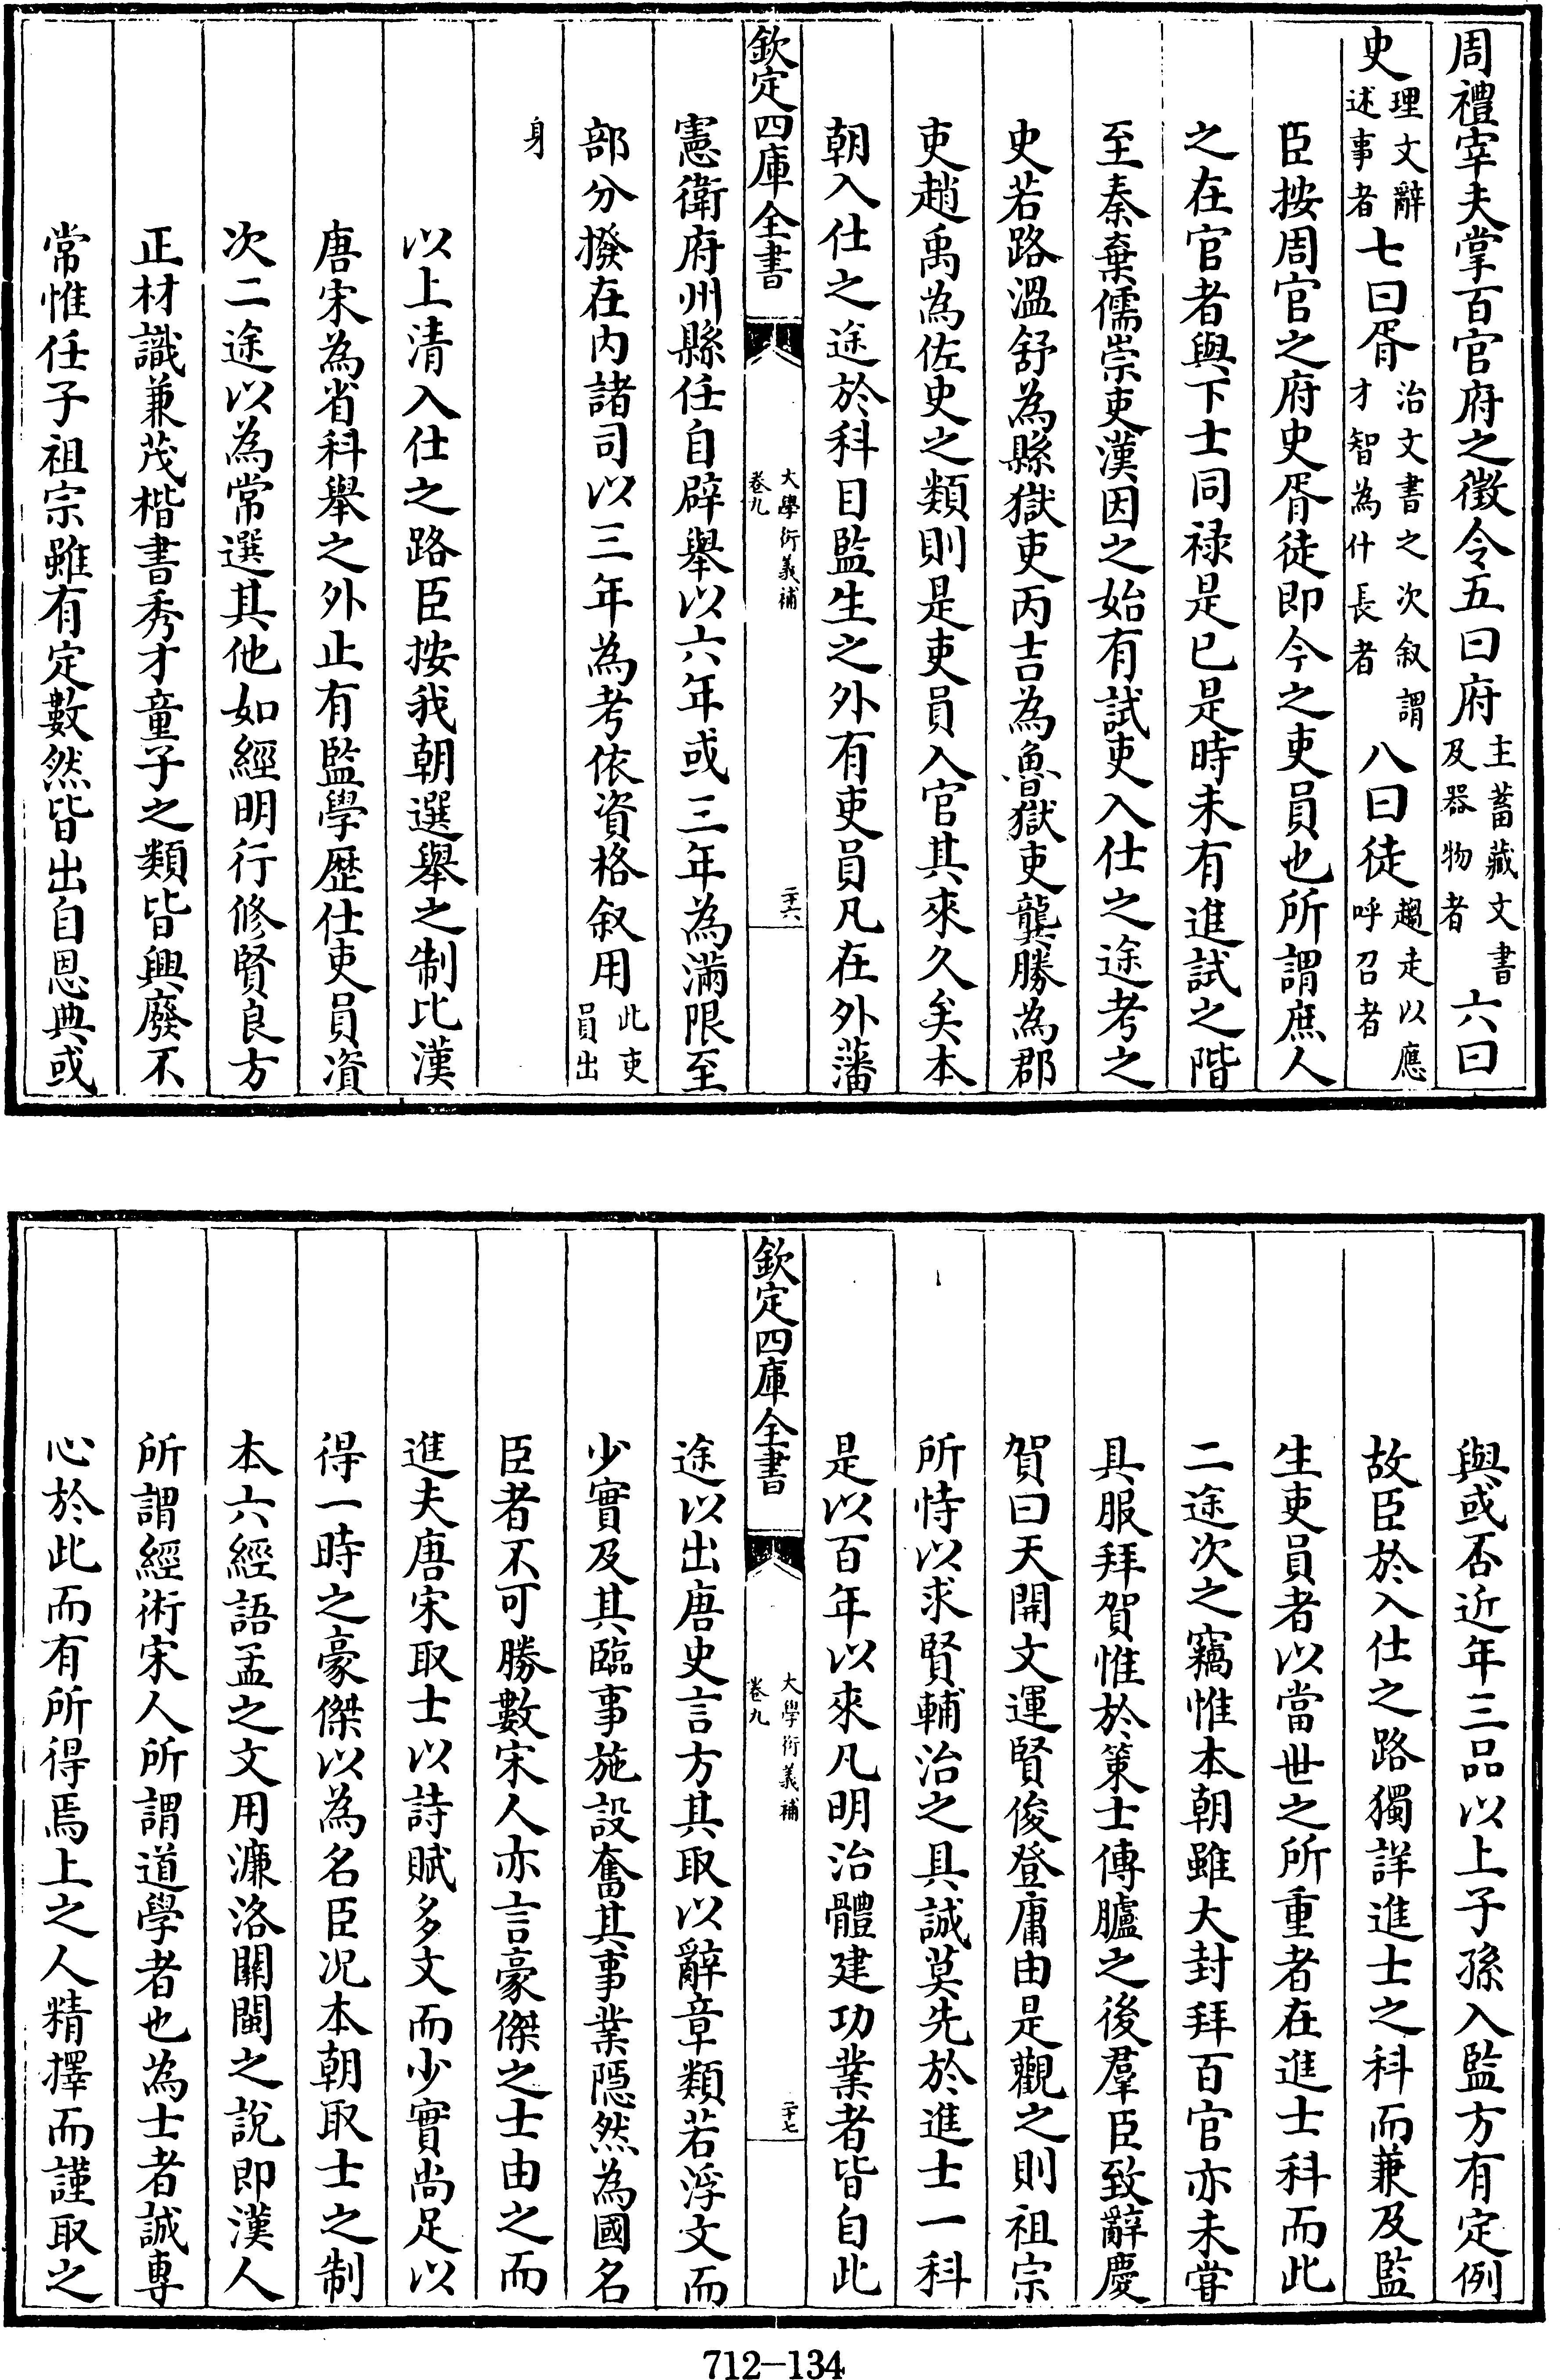 周禮宰夫掌百官府之徵令五曰府主蓄藏文書及器物者六曰
史理文辭述事者七曰胥治文書之次叙謂才智為什長者八曰徒趨走以應呼召者
臣按周官之府史胥徒即今之吏員也所謂庶人
之在官者與下士同禄是已是時未有進試之階
至秦棄儒崇吏漢因之始有試吏入仕之途考之
史若路溫舒為縣獄吏丙吉為魯獄吏龔勝為郡
吏趙禹為佐史之類則是吏員入官其來久矣本
朝入仕之途於科目監生之外有吏員凡在外藩
欽定四庫全書
大學衍義補
卷九
二十六
憲衛府州縣任自辟舉以六年或三年為滿限至
部分撥在内諸司以三年為考依資格叙用此吏員出
身
以上清入仕之路臣按我朝選舉之制比漢
唐宋為省科舉之外止有監學歷仕吏員資
次二途以為常選其他如經明行修賢良方
正材識兼茂楷書秀才童子之類皆興廢不
常惟任子祖宗雖有定數然皆出自恩典或
與或否近年三品以上子孫入監方有定例
故臣於入仕之路獨詳進士之科而兼及監
生吏員者以當世之所重者在進士科而此
二途次之竊惟本朝雖大封拜百官亦未嘗
具服拜賀惟於策士傳臚之後羣臣致辭慶
賀曰天開文運賢俊登庸由是觀之則祖宗
所恃以求賢輔治之具誠莫先於進士一科
是以百年以來凡明治體建功業者皆自此
欽定四庫全書
大學衍義補
卷九
二十七
途以出唐史言方其取以辭章類若浮文而
少實及其臨事施設奮其事業隱然為國名
臣者不可勝數宋人亦言豪傑之士由之而
進夫唐宋取士以詩賦多文而少實尚足以
得一時之豪傑以為名臣况本朝取士之制
本六經語孟之文用濂洛關閩之說即漢人
所謂經術宋人所謂道學者也為士者誠專
心於此而有所得焉上之人精擇而謹取之
712-134